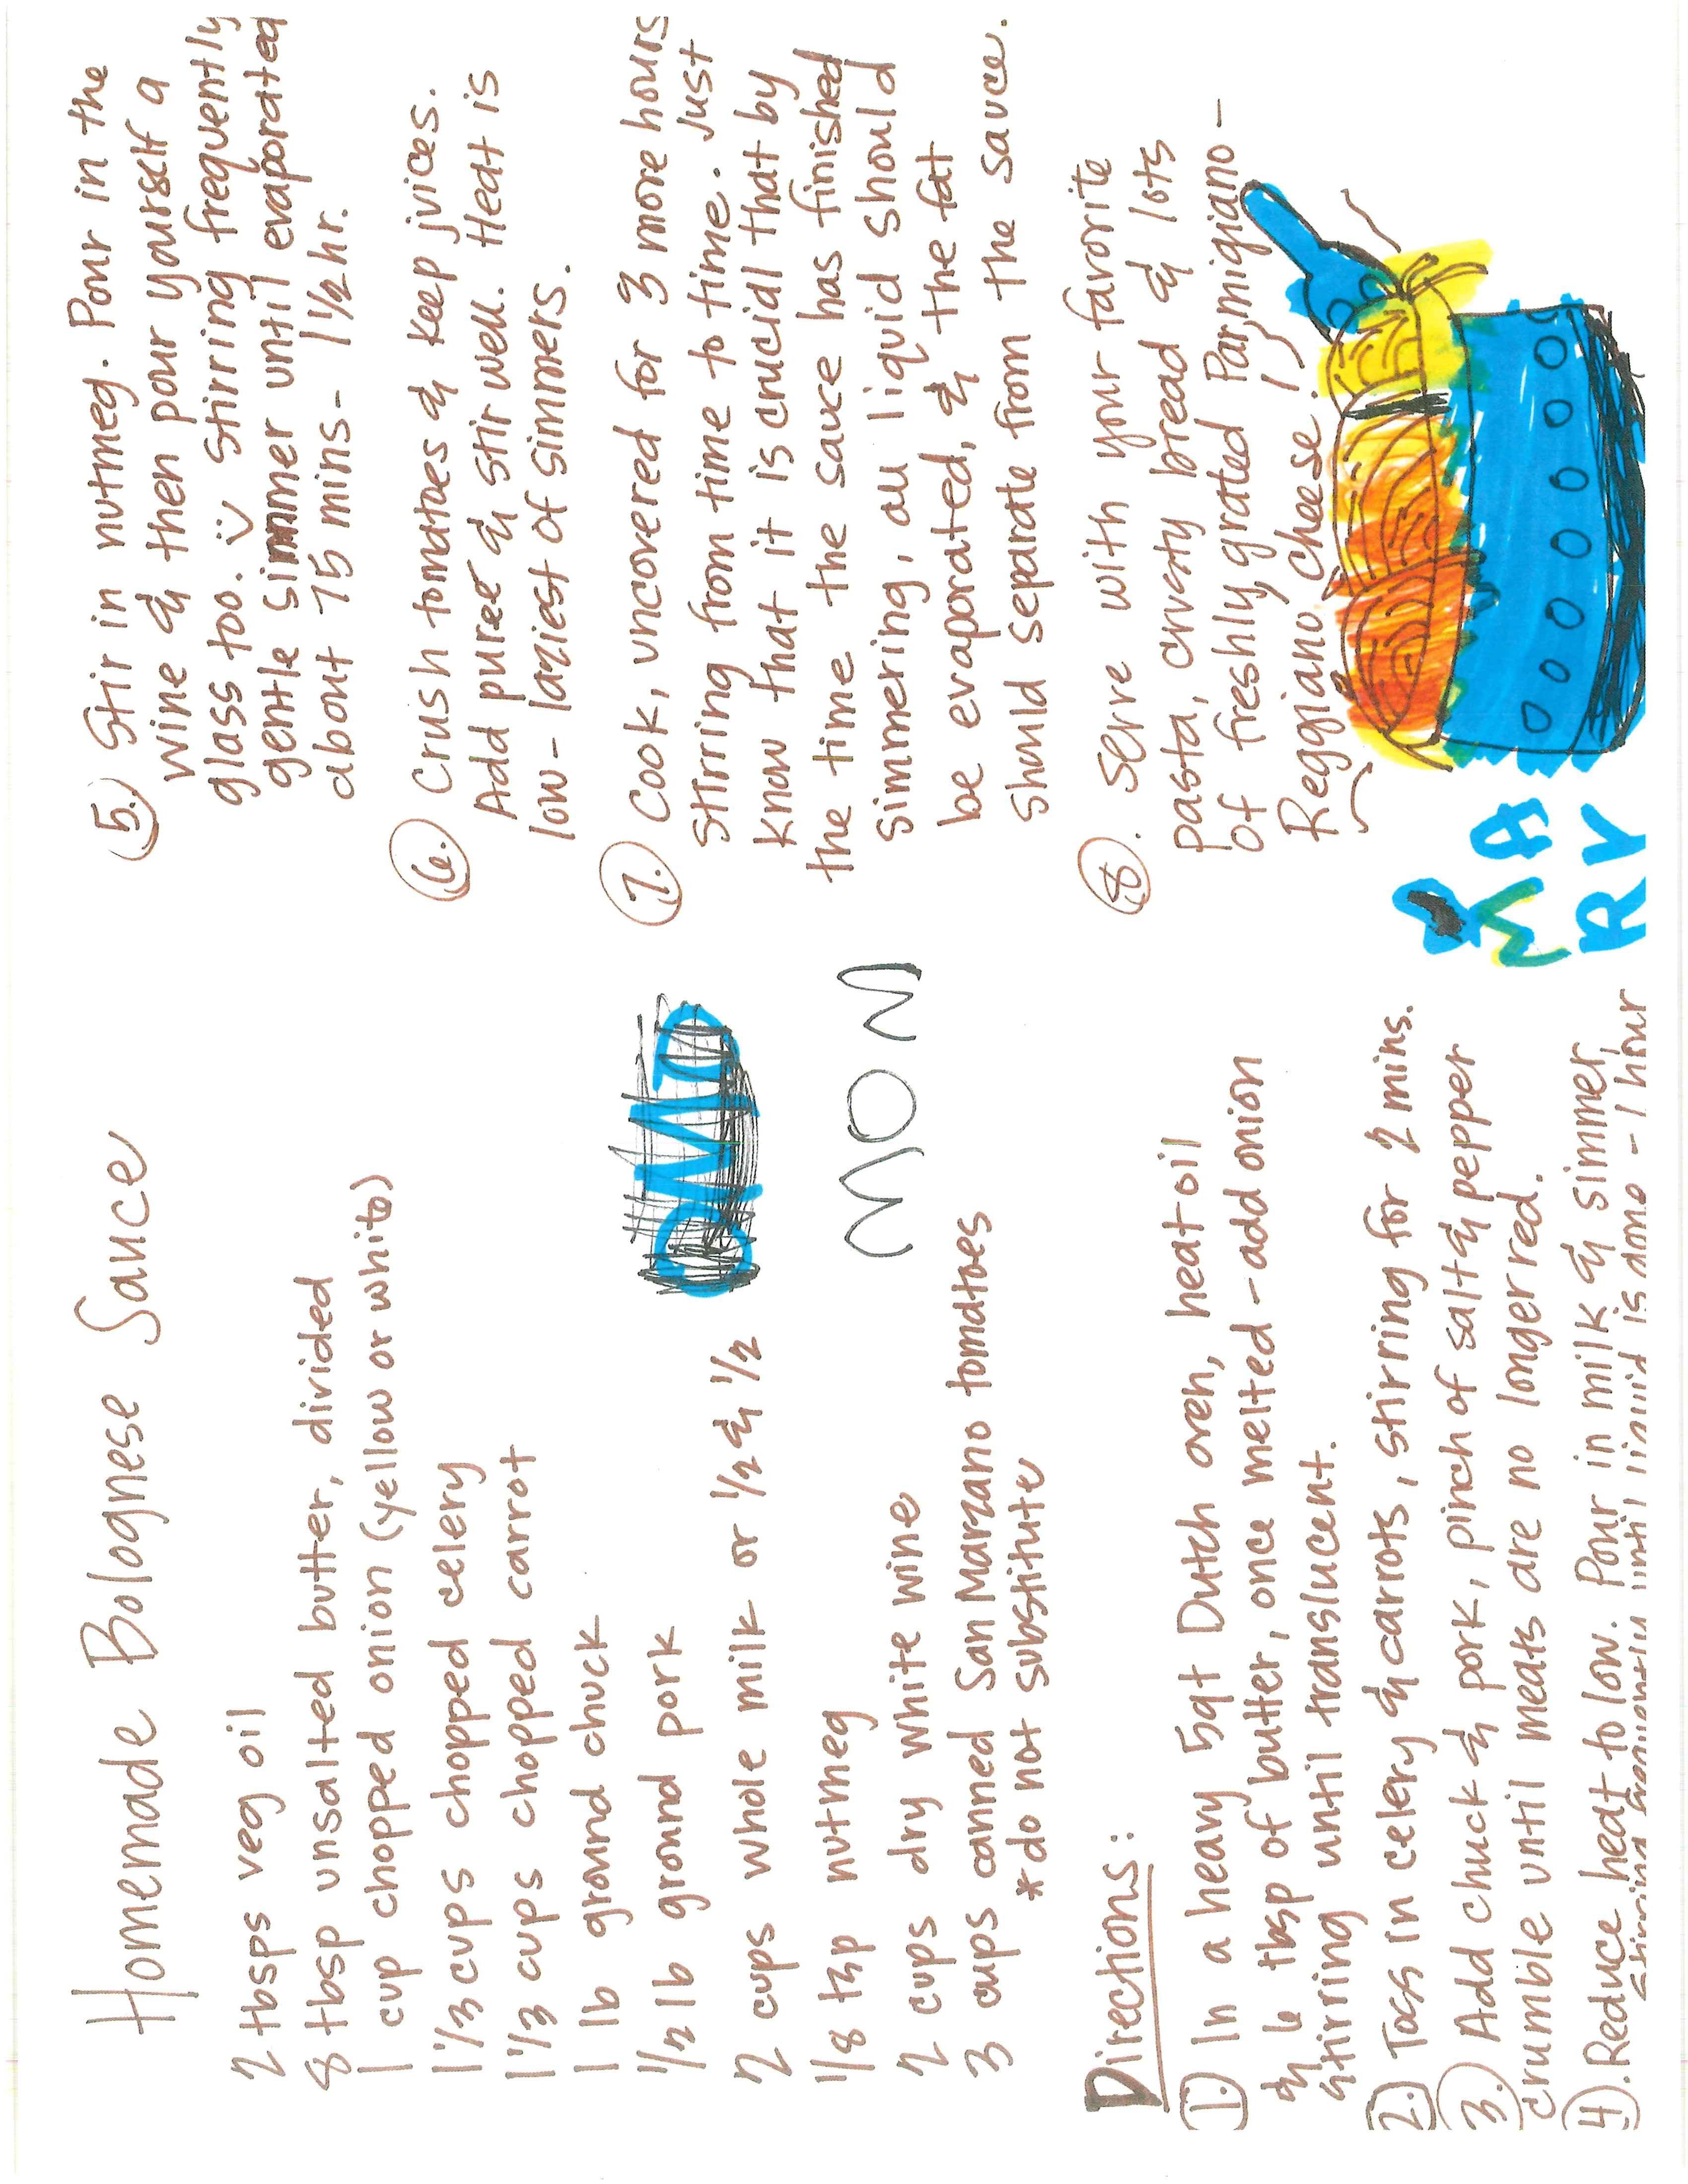 Homemade Bolognese Sauce
2 tbsps veg oil
8 tbsp unsalted butter, divided
1 cup chopped onion (yellow or white)
1 1/3 cups chopped celery
1 1/3 cups chopped carrot
1 lb ground chuck
1/2 lb ground pork
2 cups whole milk or 1/2 & 1/2
1/8 tsp nutmeg
2 cups dry white wine
3 cups canned San Marzano tomatoes
*do not substitute
WOW
Directions:
1.) In a heavy 5qt Dutch oven, heat oil
& 6 tbsp of butter, once melted - add onion
stirring until translucent.
2.) Toss in celery & carrots, stirring for 2 mins.
3.) Add chuck & pork, pinch of salt & pepper
crumble until meats are no longer red.
4.) Reduce heat to low. Pour in milk & simmer,
stirring frequently until liquid is gone - 1 hour
5.) Stir in nutmeg. Pour in the
wine & then pour yourself a
glass too. stirring frequently
gentle simmer until evaporated
about 75 mins - 1 1/2 hr.
6. Crush tomatoes & keep juices.
Add puree & stir well. Heat is
low - laziest of simmers.
7. Cook, uncovered for 3 more hours
stirring from time to time. Just
know that it is crucial that by
the time the sauce has finished
simmering, all liquid should
be evaporated, & the fat
should separate from the sauce.
8. Serve with your favorite
pasta, crusty bread & lots
of freshly grated Parmigiano-
Reggiano cheese!
MA
RY